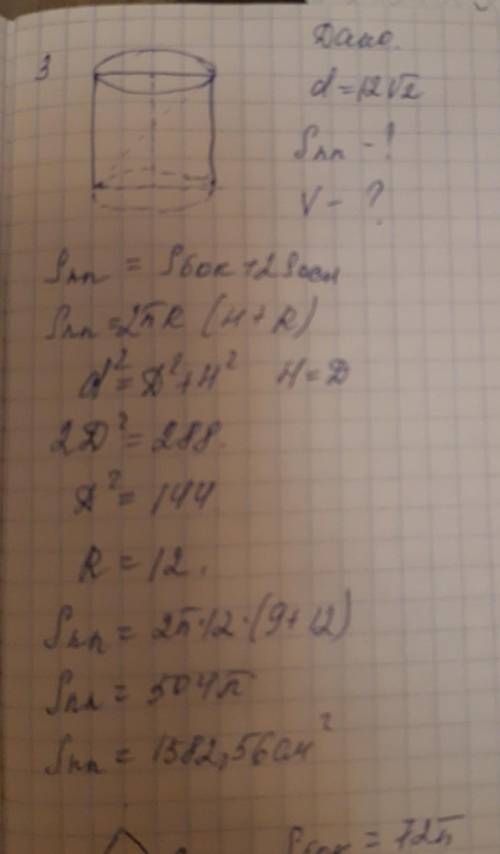 3
Дано.
d = 12√2
Sпп - ?
V - ?
Sпп = Sбок + 2Sосн
Sпп = 2πR (H + R)
d² = D² + H² H = D
2D² = 288.
D² = 144
R = 12.
Sпп = 2π·12·(9 + 12)
Sпп = 504π
Sпп = 1582,56 см²
Sбок = 72π